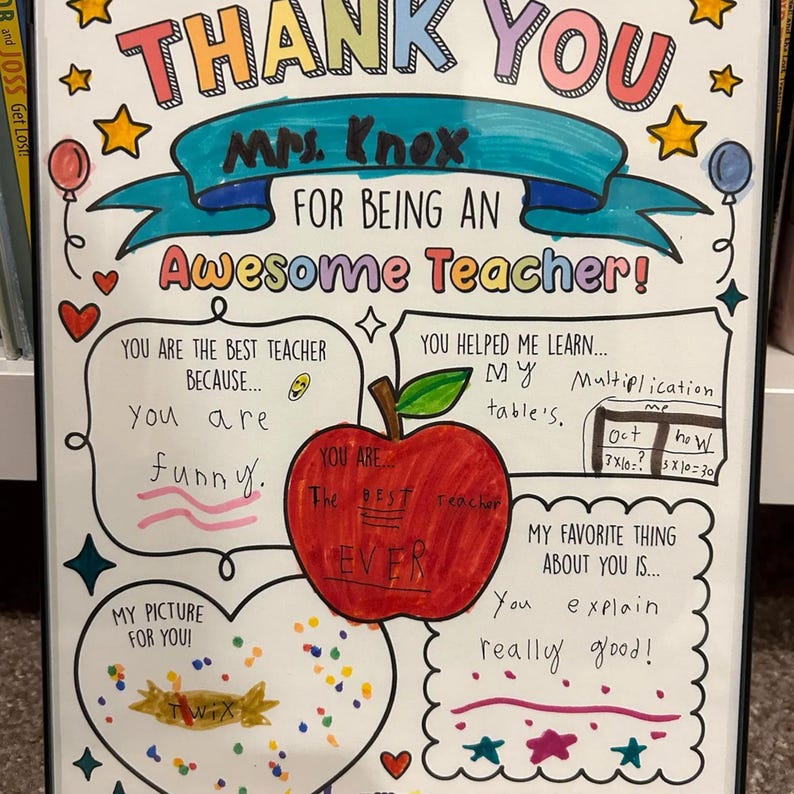 BOB
and JOSS
Get Lost!
THANK YOU
Mrs. Knox
FOR BEING AN
Awesome Teacher!
YOU ARE THE BEST TEACHER
BECAUSE...
you are
funny.
YOU HELPED ME LEARN...
My Multiplication
table's.
me
Oct now
3x10=? 3x10=30
YOU ARE...
The BEST teacher
EVER
MY FAVORITE THING
ABOUT YOU IS...
You explain
really good!
MY PICTURE
FOR YOU!
TWiX